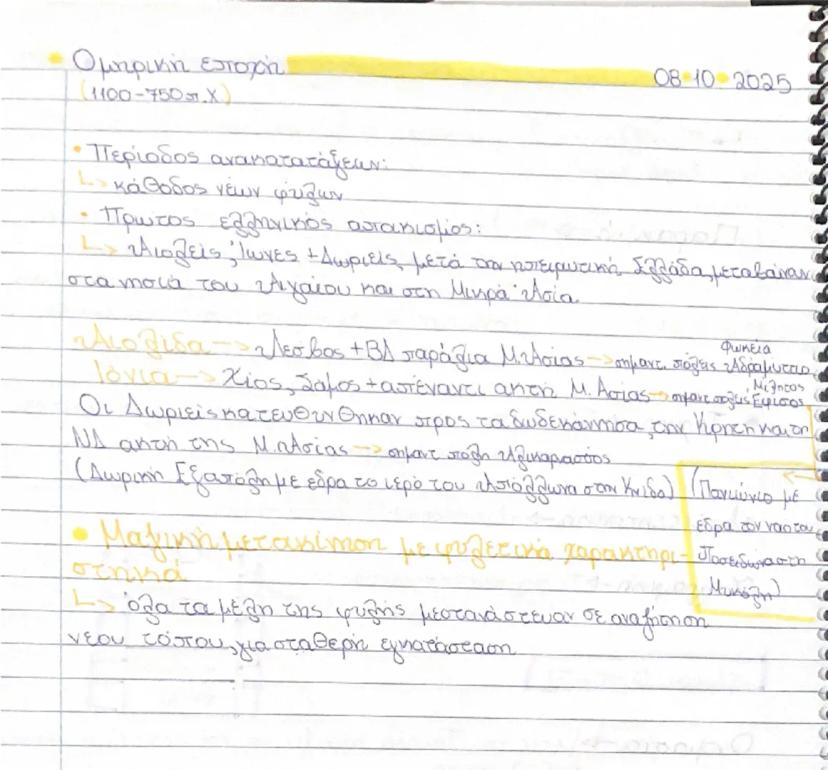 Ομηρική εποχή 08-10-2025
(1100-750π.Χ)
• Περίοδος ανακατατάξεων:
↳ κάθοδος νέων φύλων
• Πρώτος ελληνικός αποικισμός:
↳ Αιολείς, Ίωνες + Δωριείς, μετά την ηπειρωτική Ελλάδα, μεταβαίνουν
στα νησιά του Αιγαίου και στη Μικρά Ασία
Αιολίδα --> Λέσβος + ΒΔ παράλια Μ. Ασίας --> σημαντ. πόλεις Φωκεία Αδραμύττιο
Ιόνια --> Χίος, Σάμος + απέναντι ακτή Μ. Ασίας --> σημαντ πόλεις Μίλητος Έφεσος
Οι Δωριείς κατευθύνθηκαν προς τα δωδεκάνησα, την Κρήτη και τη
ΝΔ ακτή της Μ. Ασίας --> σημαντ πόλη Αλικαρνασσός
(Δωρική Εξάπολη με έδρα το ιερό του Απόλλωνα στην Κνίδο)
(Πανιώνιο με
έδρα τον ναό του
Ποσειδώνα στη
Μυκάλη)
• Μαζική μετακίνηση με φυλετικά χαρακτηρι-
στηκά
↳ όλα τα μέλη της φυλής μεταναστευαν σε αναζήτηση
νέου τόπου, για σταθερή εγκατάσταση